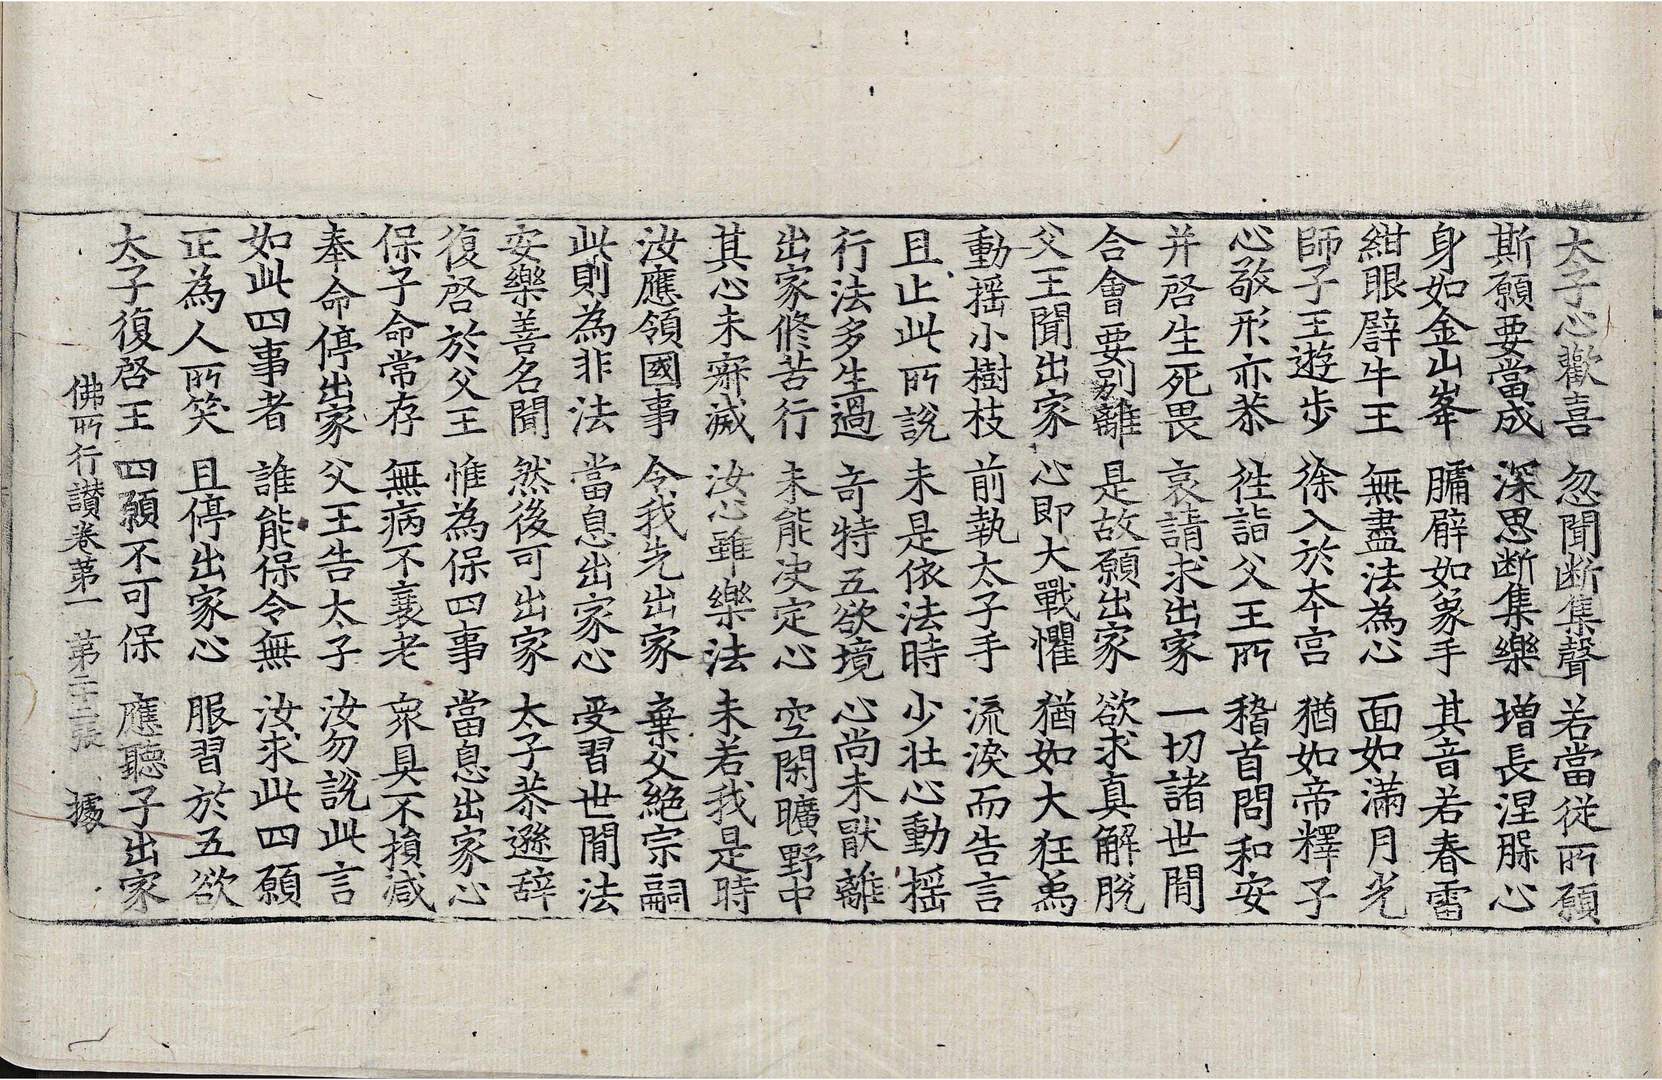 太子心歡喜 忽聞断集聲 若當従所願
斯願要當成 深思断集樂 增長涅槃心
身如金山峯 𦟛臂如象手 其音若春雷
紺眼譬牛王 無盡法為心 面如滿月光
師子王遊步 徐入於本宮 猶如帝釋子
心敬形亦恭 徃詣父王所 稽首問和安
并啓生死畏 哀請求出家 一切諸世間
合會要別離 是故願出家 欲求真解脫
父王聞出家 心即大戰懼 猶如大狂象
動搖小樹枝 前執太子手 流淚而告言
且止此所說 未是依法時 少壯心動搖
行法多生過 奇特五欲境 心尚未猒離
出家修苦行 未能决定心 空閑曠野中
其心未寂滅 汝心雖樂法 未若我是時
汝應領國事 令我先出家 棄父絕宗嗣
此則為非法 當息出家心 受習世間法
安樂善名聞 然後可出家 太子恭遜辞
復啓於父王 惟為保四事 當息出家心
保子命常存 無病不衰老 衆具不損減
奉命停出家 父王告太子 汝勿說此言
如此四事者 誰能保令無 汝求此四願
正為人所笑 且停出家心 服習於五欲
太子復啓王 四願不可保 應聽子出家
佛所行讃卷第一 第二十三張 據